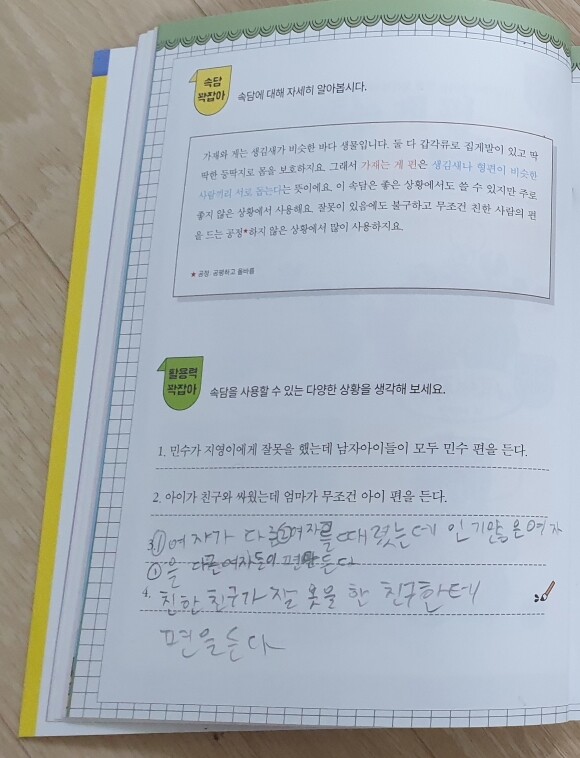 속담
꽉잡아
속담에 대해 자세히 알아봅시다.
가재와 게는 생김새가 비슷한 바다 생물입니다. 둘 다 갑각류로 집게발이 있고 딱
딱한 등딱지로 몸을 보호하지요. 그래서 가재는 게 편은 생김새나 형편이 비슷한
사람끼리 서로 돕는다는 뜻이에요. 이 속담은 좋은 상황에서도 쓸 수 있지만 주로
좋지 않은 상황에서 사용해요. 잘못이 있음에도 불구하고 무조건 친한 사람의 편
을 드는 공정*하지 않은 상황에서 많이 사용하지요.
* 공정: 공평하고 올바름
활용력
꽉잡아
속담을 사용할 수 있는 다양한 상황을 생각해 보세요.
1. 민수가 지영이에게 잘못을 했는데 남자아이들이 모두 민수 편을 든다.
2. 아이가 친구와 싸웠는데 엄마가 무조건 아이 편을 든다.
3. ① 여자가 다른 ② 여자를 때렸는데 인기많은 여자
①을 다른 여자들이 편을 든다
4. 친한 친구가 잘못을 한 친구한테
편을 든다